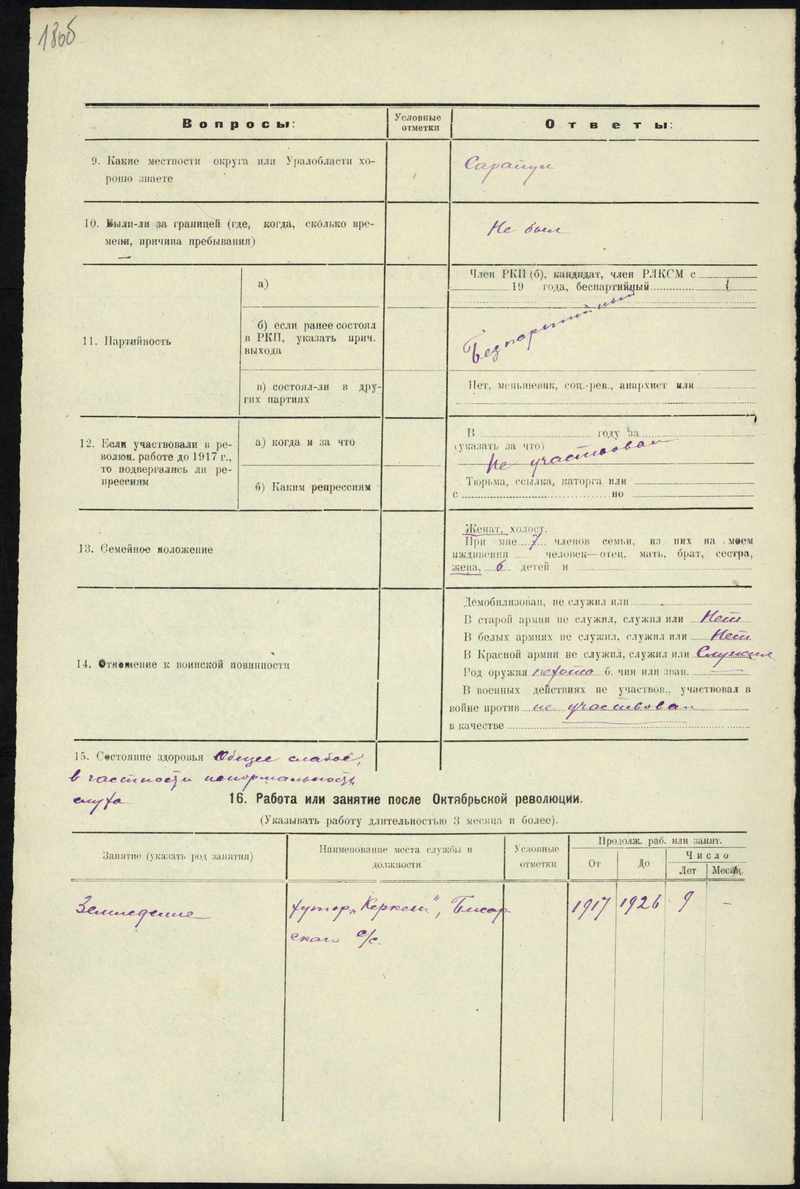 Вопросы:
Условные
отметки
Ответы:
9. Какие местности округа или Уралобласти хо-
рошо знаете
Сарапул
10. Были-ли за границей (где, когда, сколько вре-
мени, причина пребывания)
Не был
11. Партийность
а)
Член РКП (б), кандидат, член РЛКСМ с
19 года, беспартийный
б) если ранее состоял
в РКП, указать прич.
выхода
Безпартийный
в) состоял-ли в дру-
гих партиях
Нет, меньшевик, соц.-рев., анархист или
12. Если участвовали в ре-
волюц. работе до 1917 г.,
то подвергались ли ре-
прессиям
а) когда и за что
В году за
(указать за что)
Не участвовал
б) Каким репрессиям
Тюрьма, ссылка, каторга или
с по
13. Семейное положение
Женат, холост.
При мне 7 членов семьи, из них на моем
иждивении человек—отец, мать, брат, сестра,
жена, 6 детей и
14. Отношение к воинской повинности
Демобилизован, не служил или
В старой армии не служил, служил или Нет
В белых армиях не служил, служил или Нет
В Красной армии не служил, служил или Служил
Род оружия пехота б. чин или зван.
В военных действиях не участвов., участвовал в
войне против не участвовал
в качестве
15. Состояние здоровья Общее слабое,
в частности ненормальность
слуха
16. Работа или занятие после Октябрьской революции.
(Указывать работу длительностью 3 месяца и более).
Занятие (указать род занятия)
Наименование места службы и
должности
Условные
отметки
Продолж. раб. или занят.
От
До
Число
Лет
Месяц.
Земледелие
хутор „Керкеш", Бисар
ского с/с.
1917
1926
9
–